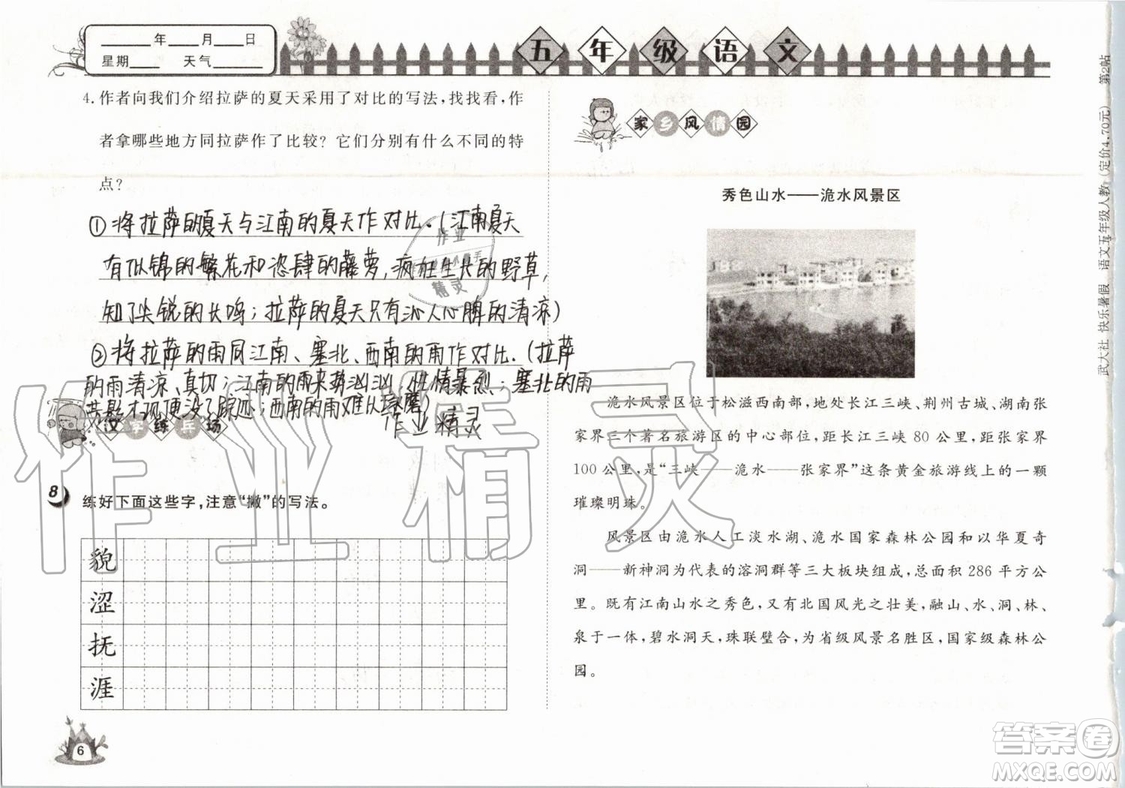 ______年____月____日
星期____ 天气______
五年级语文
4.作者向我们介绍拉萨的夏天采用了对比的写法,找找看,作
者拿哪些地方同拉萨作了比较?它们分别有什么不同的特
点?
①将拉萨的夏天与江南的夏天作对比.(江南夏天
有似锦的繁花和恣肆的藤萝,疯狂生长的野草,
知了尖锐的长鸣;拉萨的夏天只有沁人心脾的清凉)
②将拉萨的雨同江南、塞北、西南的雨作对比.(拉萨
的雨清凉、真切;江南的雨来势汹汹,性情暴烈;塞北的雨
其影才现便没了踪迹;西南的雨难以琢磨
作业精灵
汉字练兵场
8
练好下面这些字,注意“撇”的写法。
貌
涩
抚
涯
6
家乡风情园
秀色山水——洈水风景区
洈水风景区位于松滋西南部,地处长江三峡、荆州古城、湖南张
家界三个著名旅游区的中心部位,距长江三峡 80 公里,距张家界
100 公里,是“三峡——洈水——张家界”这条黄金旅游线上的一颗
璀璨明珠。
风景区由洈水人工淡水湖、洈水国家森林公园和以华夏奇
洞——新神洞为代表的溶洞群等三大板块组成,总面积 286 平方公
里。既有江南山水之秀色,又有北国风光之壮美,融山、水、洞、林、
泉于一体,碧水洞天,珠联璧合,为省级风景名胜区,国家级森林公
园。
武大社 快乐暑假 语文五年级人教(定价4.70元) 第2帖
作业精灵
答案圈
MXQE.COM